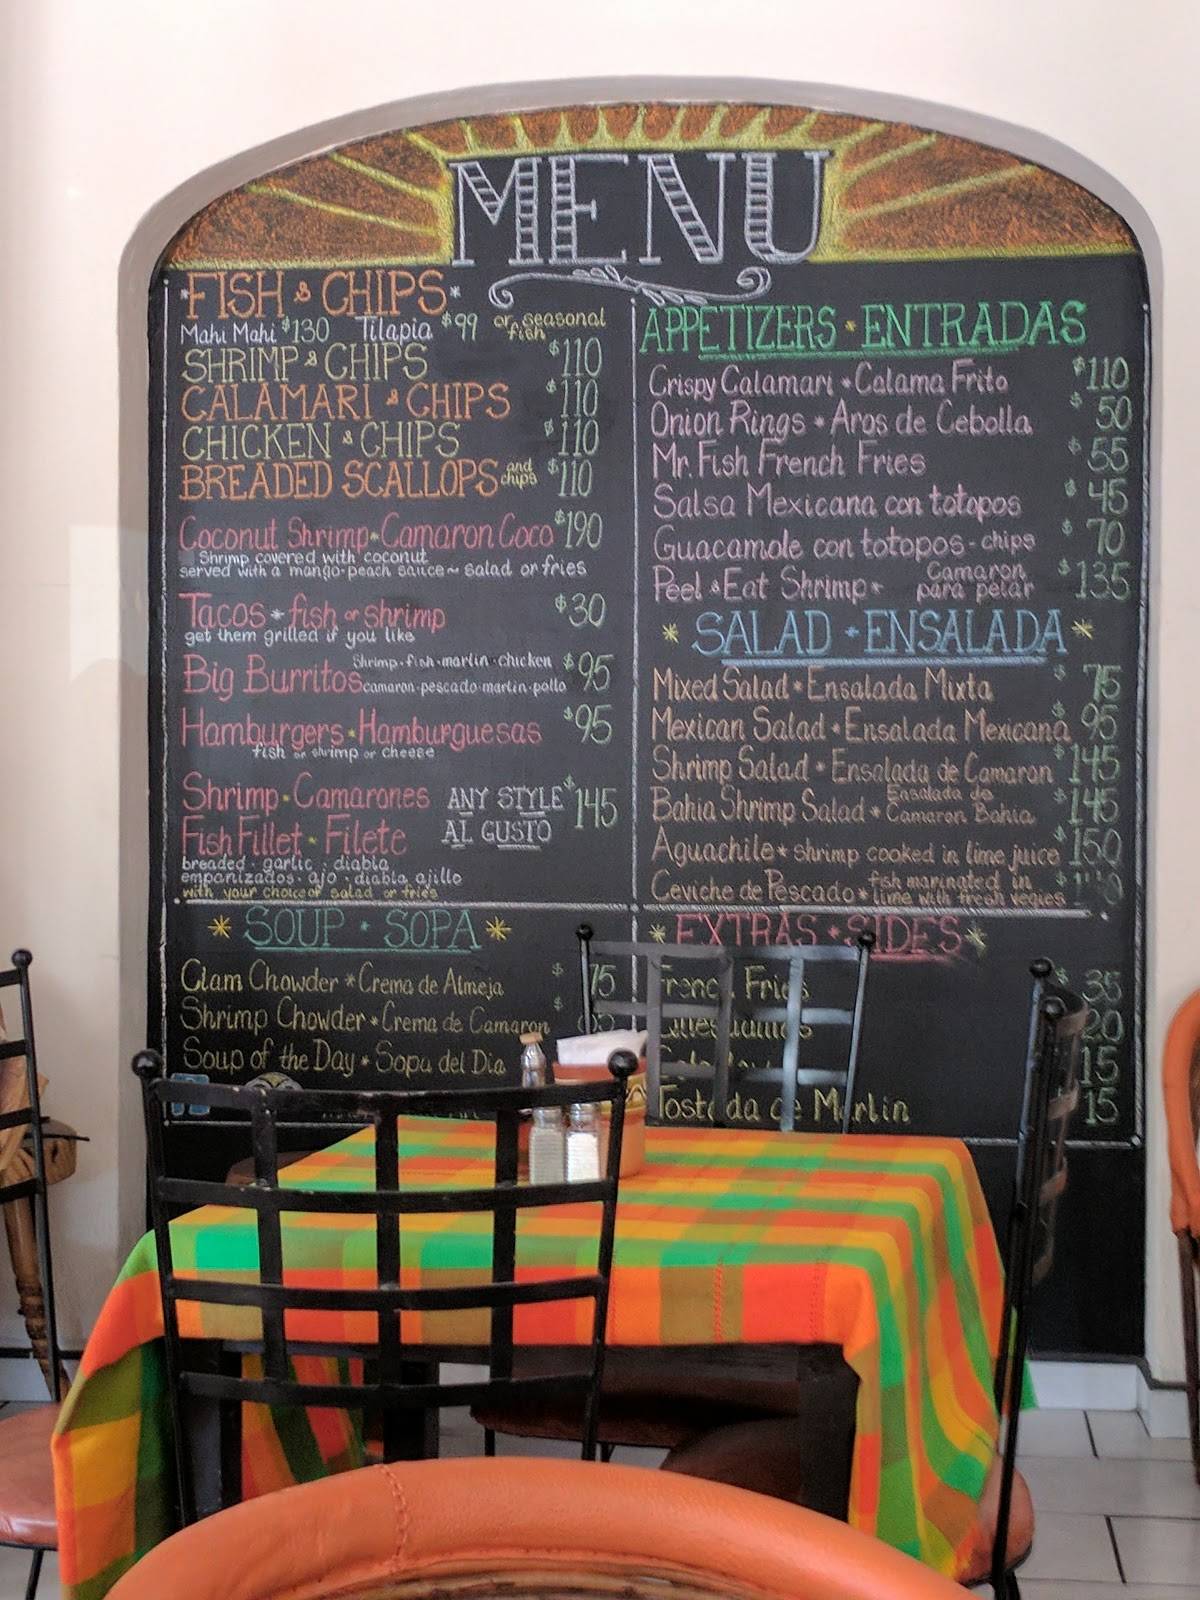 MENU
*FISH & CHIPS*
Mahi Mahi $130 Tilapia $99 or seasonal fish
SHRIMP & CHIPS $110
CALAMARI & CHIPS $110
CHICKEN & CHIPS $110
BREADED SCALLOPS and chips $110
Coconut Shrimp * Camaron Coco $190
Shrimp covered with coconut
served with a mango-peach sauce ~ salad or fries
Tacos * fish or shrimp $30
get them grilled if you like
Big Burritos shrimp · fish · marlin · chicken $95
camaron · pescado · marlin · pollo
Hamburgers * Hamburguesas $95
fish or shrimp or cheese
Shrimp · Camarones ANY STYLE $145
Fish Fillet · Filete AL GUSTO
breaded · garlic · diabla
empanizados · ajo · diabla ajillo
with your choice of salad or fries
* SOUP · SOPA *
Clam Chowder * Crema de Almeja $75
Shrimp Chowder * Crema de Camaron $
Soup of the Day * Sopa del Dia
APPETIZERS * ENTRADAS
Crispy Calamari * Calama Frito $110
Onion Rings * Aros de Cebolla $50
Mr. Fish French Fries $55
Salsa Mexicana con totopos $45
Guacamole con totopos - chips $70
Peel & Eat Shrimp * Camaron para pelar $135
* SALAD * ENSALADA *
Mixed Salad * Ensalada Mixta $75
Mexican Salad * Ensalada Mexicana $95
Shrimp Salad * Ensalada de Camaron $145
Bahia Shrimp Salad * Ensalada de Camaron Bahia $145
Aguachile * shrimp cooked in lime juice $150
Ceviche de Pescado * fish marinated in lime with fresh vegies $
* EXTRAS * SIDES *
French Fries $35
20
15
Tostada de Marlin 15